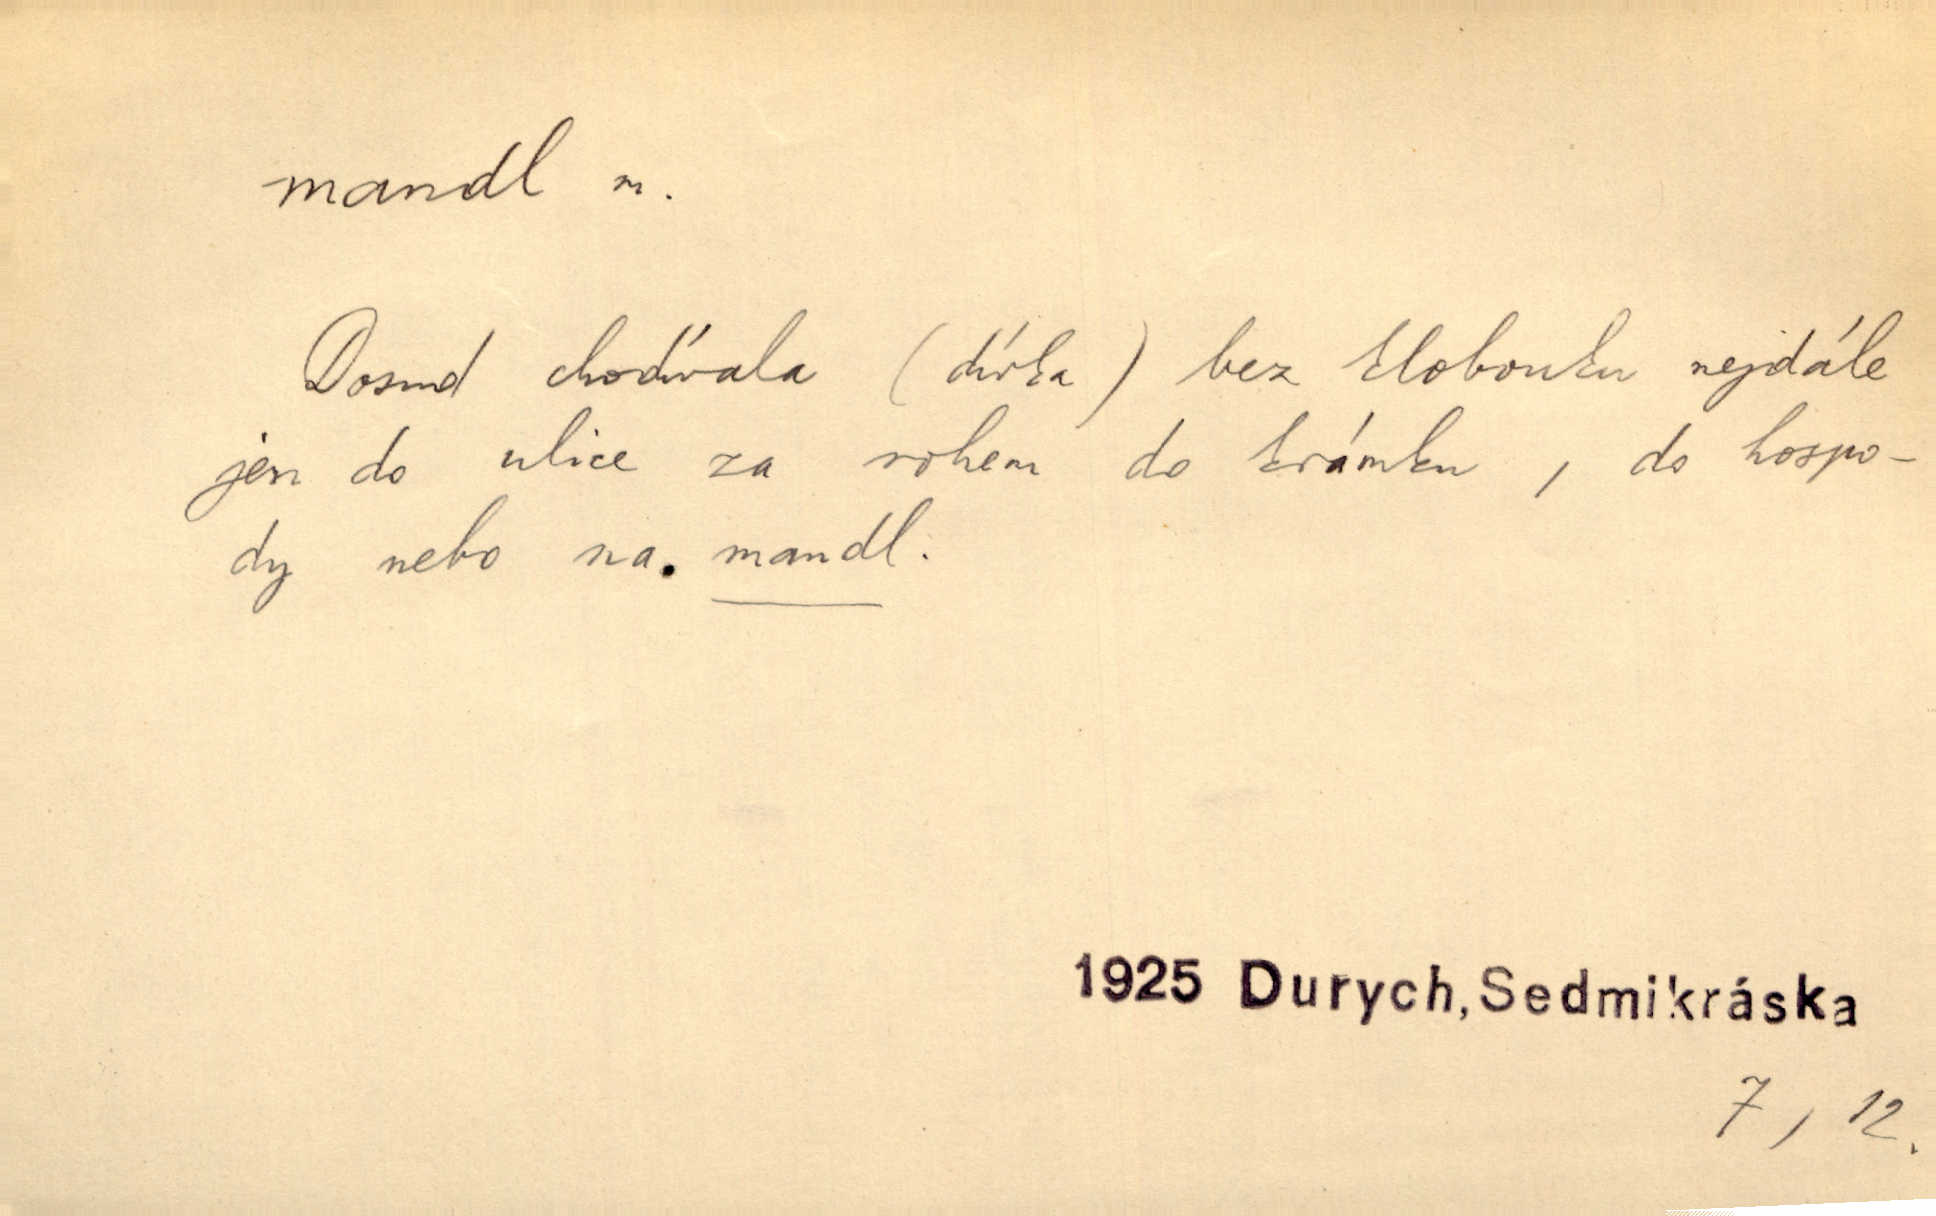 mandl m.
Dosud chodívala (dívka) bez klobouku nejdále
jen do ulice za rohem do krámku, do hospo-
dy nebo na mandl.
1925 Durych, Sedmikráska
7, 12.